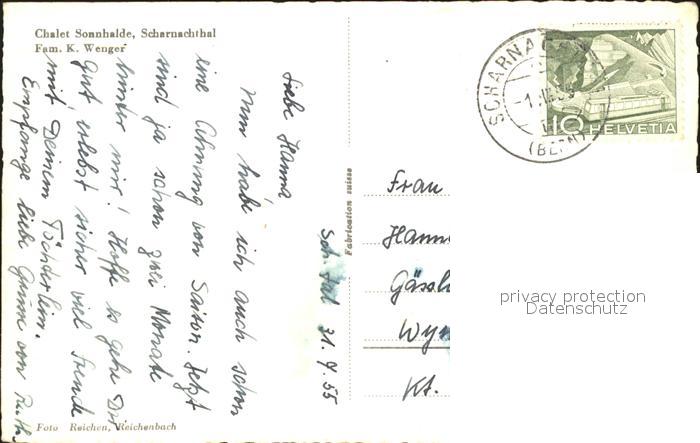 Chalet Sonnhalde, Scharnachthal
Fam. K. Wenger
Liebe Hanna
Nun habe ich auch schon
eine Ahnung von Saison. Jetzt
sind ja schon zwei Monate
hinter mir! Hoffe es gehe Dir
gut erlebst sicher viel Freude
mit Deinem Töchterlein.
Empfange liebe Grüsse von Ruth
Foto Reichen, Reichenbach
Sch.tal 31. 7. 55
Fabrication suisse
SCHARNAC
(BERN)
10 HELVETIA
Frau
Hann
Gässl
Wyn
Kt.
privacy protection
Datenschutz